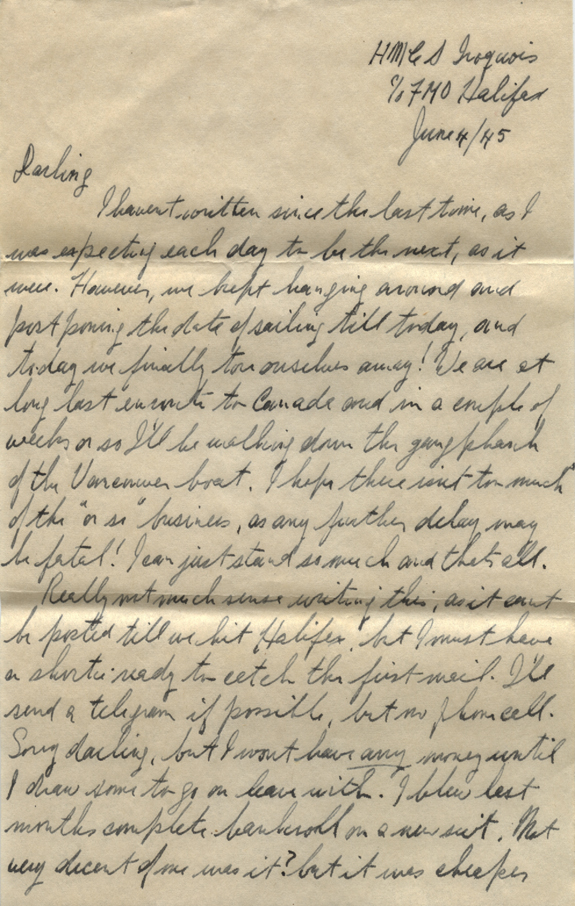 HMCS Iroquois
c/o FMO Halifax
June 4/45
Darling
I havent written since the last time, as I
was expecting each day to be the next, as it
were. However, we kept hanging around and
postponing the date of sailing till today, and
today we finally tore ourselves away! We are at
long last enroute to Canada and in a couple of
weeks or so I'll be walking down the gangplank
of the Vancouver boat. I hope there isnt too much
of the "or so" business, as any further delay may
be fatal! I can just stand so much and thats all.
Really not much sense writing this, as it cant
be posted till we hit Halifax, but I must have
a shortie ready to catch the first mail. I'll
send a telegram if possible, but no phone call.
Sorry darling, but I wont have any money until
I draw some to go on leave with. I blew last
months complete bankroll on a new suit. Not
very decent of me was it? but it was cheaper